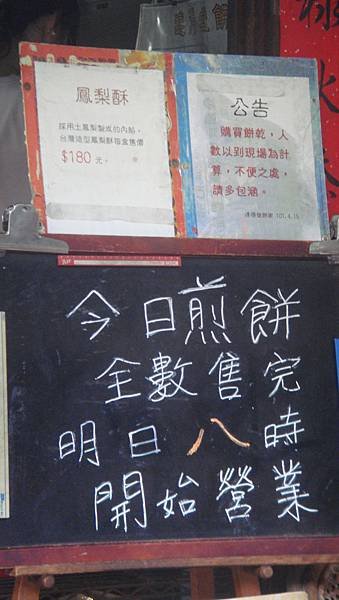 鳳梨酥
採用土鳳梨製成的內餡,
台灣造型鳳梨酥每盒售價
$180 元。
公告
購買餅乾,人
數以到現場為計
算,不便之處,
請多包涵。
101.4.15
今日煎餅
全數售完
明日八時
開始營業